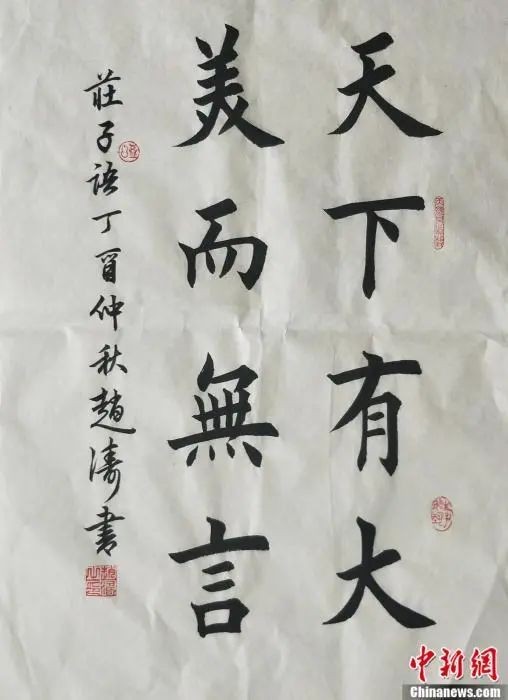 天下有大
美而無言
莊子語丁酉仲秋趙濤書
中新網
Chinanews.com